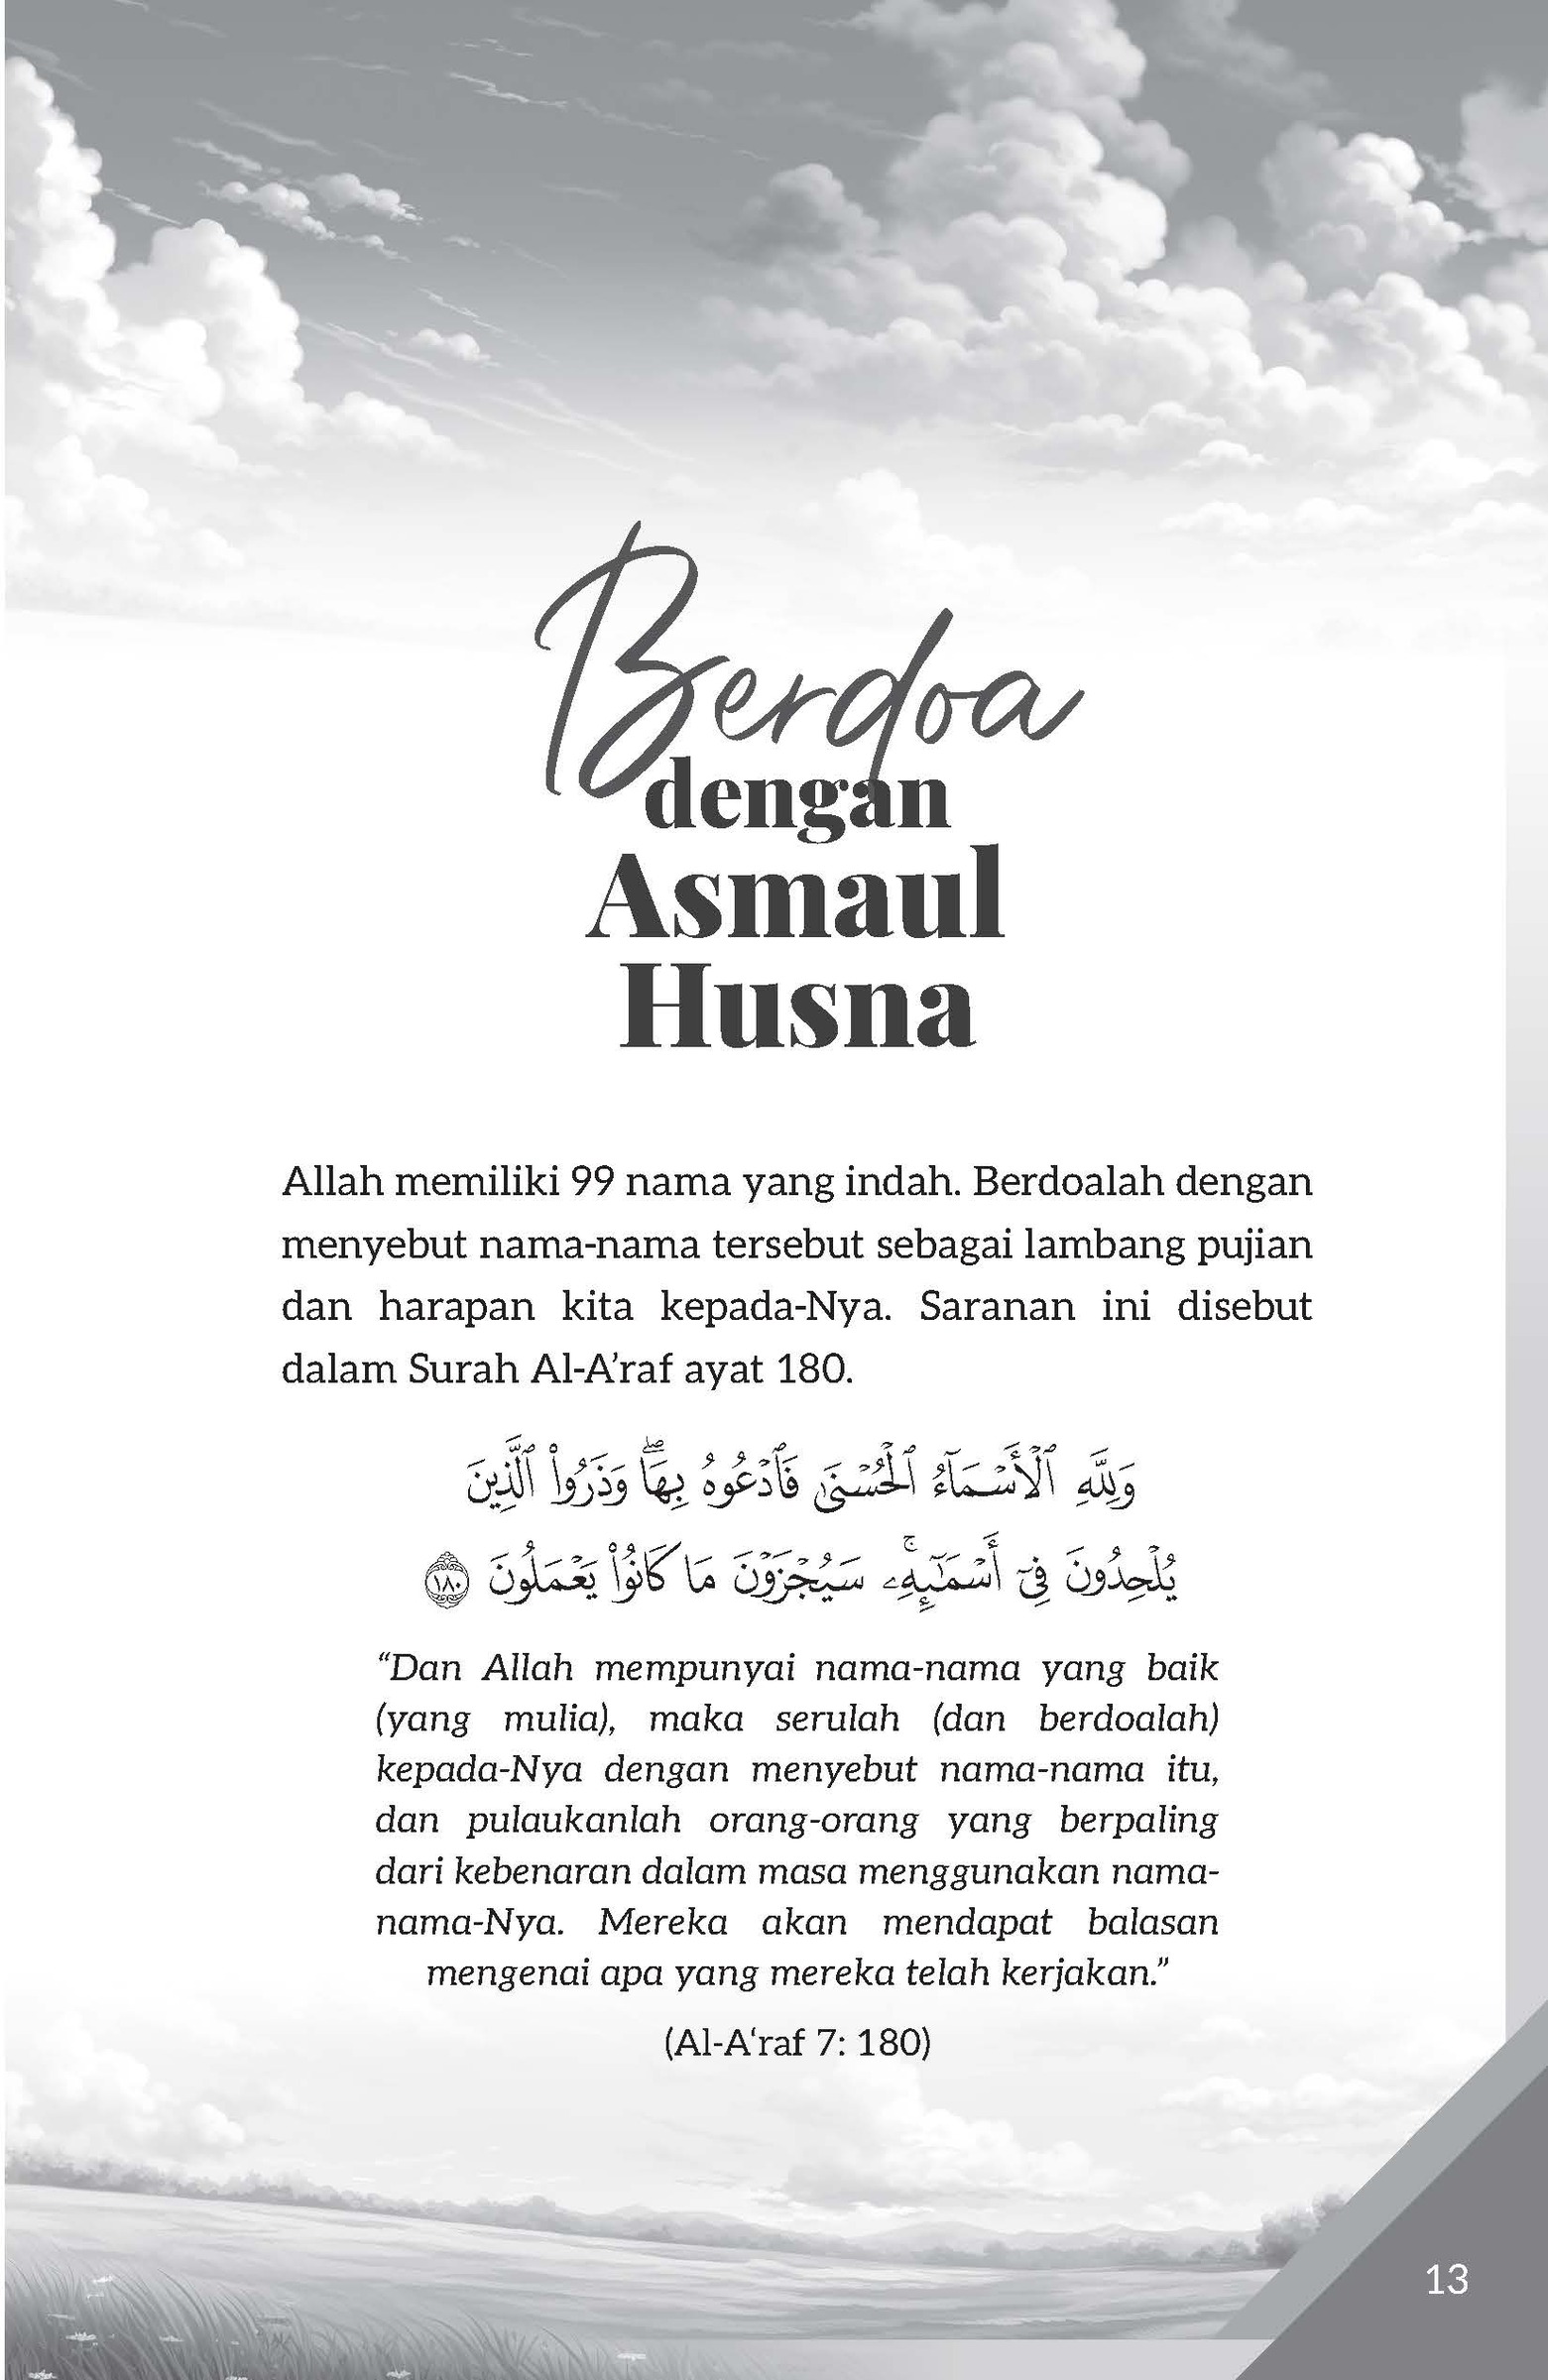 Berdoa
dengan
Asmaul
Husna
Allah memiliki 99 nama yang indah. Berdoalah dengan
menyebut nama-nama tersebut sebagai lambang pujian
dan harapan kita kepada-Nya. Saranan ini disebut
dalam Surah Al-A’raf ayat 180.
وَلِلَّهِ ٱلْأَسْمَآءُ ٱلْحُسْنَىٰ فَٱدْعُوهُ بِهَا ۖ وَذَرُوا۟ ٱلَّذِينَ
يُلْحِدُونَ فِىٓ أَسْمَـٰٓئِهِۦ ۚ سَيُجْزَوْنَ مَا كَانُوا۟ يَعْمَلُونَ ١٨٠
“Dan Allah mempunyai nama-nama yang baik
(yang mulia), maka serulah (dan berdoalah)
kepada-Nya dengan menyebut nama-nama itu,
dan pulaukanlah orang-orang yang berpaling
dari kebenaran dalam masa menggunakan nama-
nama-Nya. Mereka akan mendapat balasan
mengenai apa yang mereka telah kerjakan.”
(Al-A‘raf 7: 180)
13